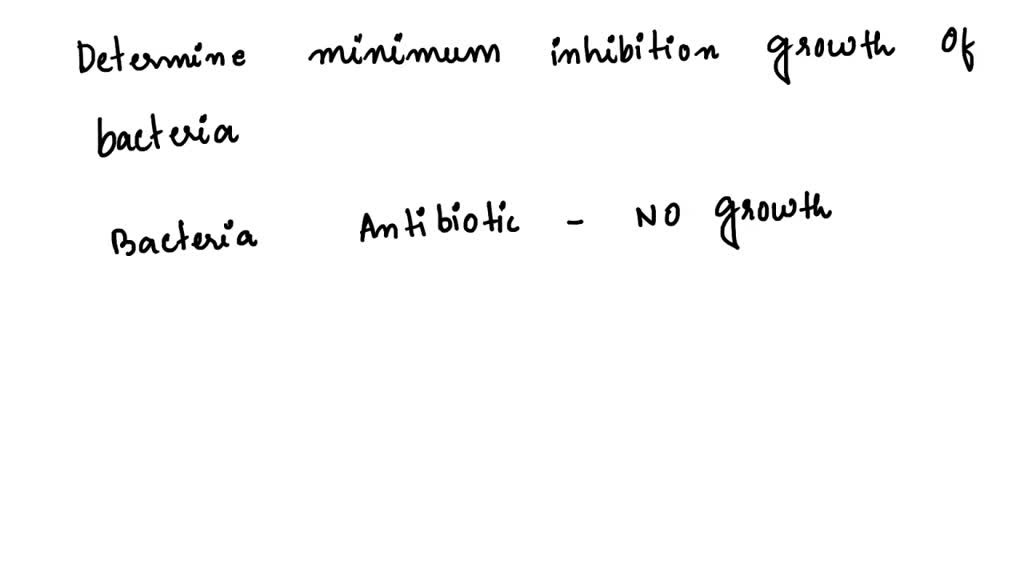 Determine minimum inhibition growth of
bacteria
Bacteria Antibiotic - NO growth